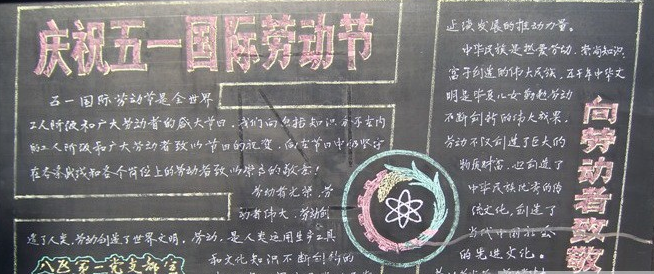 庆祝五一国际劳动节
五一国际劳动节是全世界
工人阶级和广大劳动者的盛大节日,我们向包括知识分子在内
的工人阶级和广大劳动者致以节日的祝贺,向在节日中仍坚守
在各条战线和各个岗位上的劳动者致以崇高的敬意!
劳动者光荣,劳
动者伟大,劳动创
造了人类,劳动创造了世界文明,劳动,是人类运用生产工具
和文化知识不断创新的
八〇第一党支部宣
步续发展的推动力量。
中华民族是热爱劳动,崇尚知识,
富于创造的伟大民族,五千年中华文
明是华夏儿女勤劳劳动
不断创新的伟大成果,
劳动不仅创造了巨大的
物质财富,也创造了
中华民族优秀的传
统文化,创造了
当代中国社会
的先进文化。
向劳动者致敬